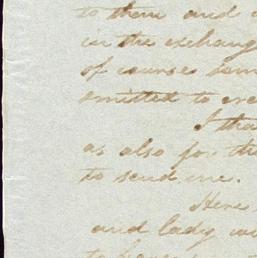 to them and
in the exchang
of course som
omitted to cre
I tha
as also for the
to send me.
Here
and lady wi